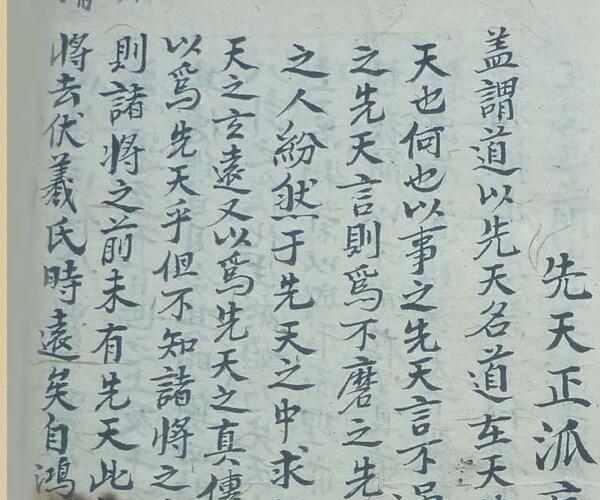 先天正派
盖謂道以先天名道在天
天也何也以事之先天言不
之先天言則爲不磨之先
之人紛然于先天之中求
天之玄遠又以爲先天之真傳
以爲先天乎但不知諸將之
則諸將之前未有先天此
將去伏羲氏時遠矣自鴻